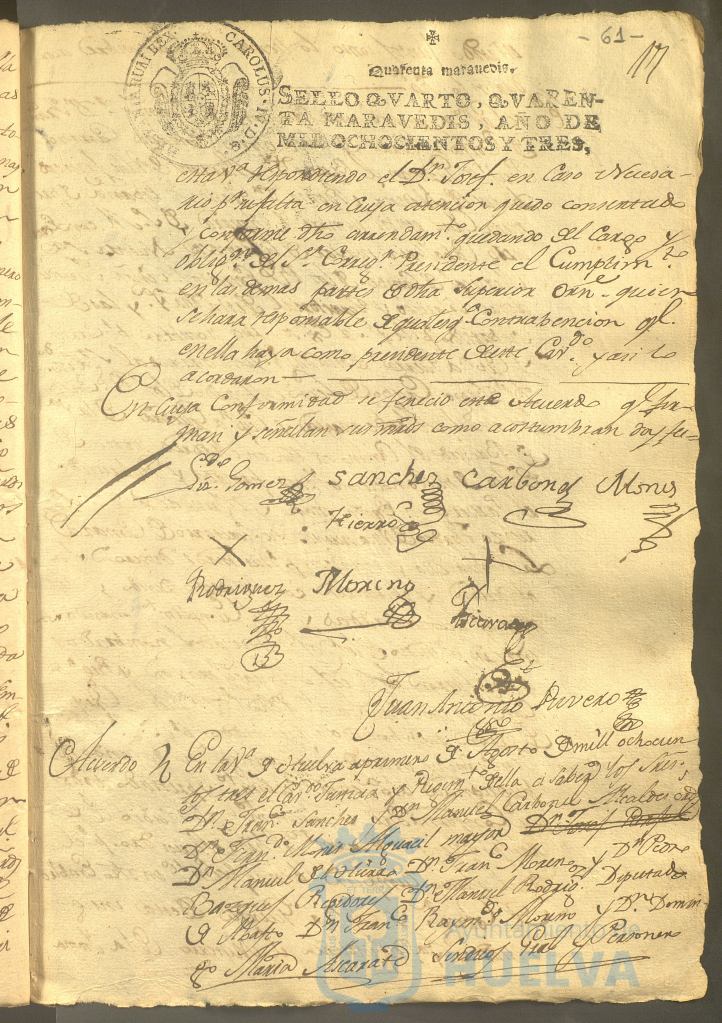 - 61 -
Quarenta maravedis.
HISPANIARUM REX CAROLUS IV D G
SELLO QVARTO, QVAREN-
TA MARAVEDIS, AÑO DE
MIL OCHOCIENTOS Y TRES,
esta Vª respondiendo el Dn. Josef. en Caso Necesa-
rio pr. su falta en Cuya atencion quedo consentido
y conforme dho arrendamto. quedando del Cargo y
obligon. del Sr. Corregr. Presidente el Cumplimto.
en las demas partes de dha Superior Orne. quien
se hara responsable de qualesqa. Contrabencion ql.
en ella haya como presidente de este Cavdo. y asi lo
acordaron
En Cuya Conformidad se fenecio este Acuerdo ql. fir-
man y señalan sus mrds como acostumbran doy fee-
Gomez Sanchez Carbonel Mones
Fierro
Rodriguez Moreno
Juan Antonio Rivero
Acuerdo En la Vª de Huelva a primero de Agosto de mill ochocien-
tos tres el Cavdo. Justicia y Regimto. della a saber los Sres.
Dn. Franco. Sanchez y Dn. Manuel Carbonel Alcaldes
Dn. Ferndo. Mones Alguacil mayor Dn. Josef
Dn. Manuel de Dn. Franco. Moreno y Dn. Pedro
Bazquez Rexidores Dn. Manuel Rodrigz. Diputado
de Abasto Dn. Franco. Raymdo. Moreno y Dn. Domin-
go Maria Ascarate Sindicos Gral y Personero
Ayuntamiento de
HUELVA